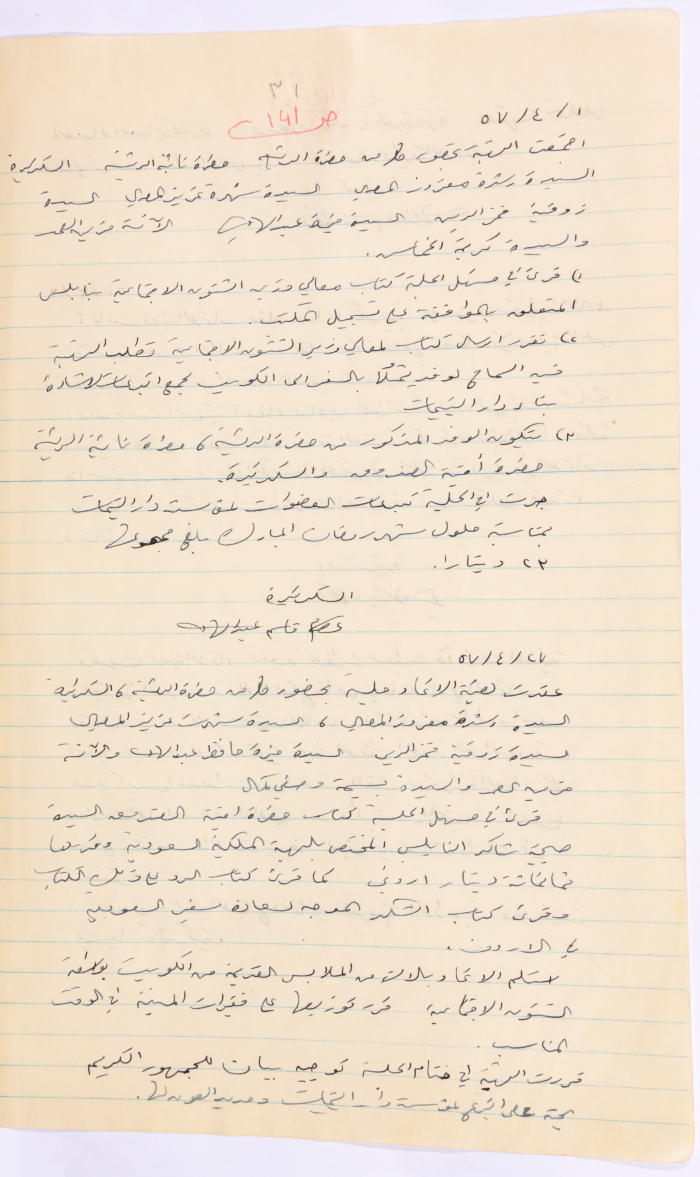 ٣١
ص ١٤١
٥٧/٤/١
اجتمعت الهيئة بحضور كل من حضرة الرئيسة حضرة نائبة الرئيسة السكرتيرة
السيدة رشدة المصري السيدة شهرة عزيز المصري السيدة
زوقية فخر الدين السيدة عبد الهادي الآنسة
والسيدة كريمة الخماس.
١) قرئ في مستهل الجلسة كتاب معالي وزير الشئون الاجتماعية بنابلس
المتعلق بالموافقة على تسجيل المكتب.
٢) تقرر ارسال كتاب لمعالي وزير الشئون الاجتماعية تطلب الهيئة
فيه السماح لوفد يمثلها بالسفر الى الكويت لجمع التبرعات لاشادة
بناء دار اليتيمات
٣) يتكون الوفد المذكور من حضرة الرئيسة، حضرة نائبة الرئيسة
حضرة أمينة الصندوق والسكرتيرة.
جرت في الجلسة تبرعات العضوات لمؤسسة دار اليتيمات
بمناسبة حلول شهر رمضان المبارك بلغ مجموعها
٢٣ دينارا.
السكرتيرة
عصام قاسم عبد الهادي
٥٧/٤/٢٧
عقدت هيئة الاتحاد جلسة بحضور كل من حضرة الرئيسة، السكرتيرة
السيدة رشدة المصري، السيدة شهرت عزيز المصري
السيدة زوقية فخر الدين السيدة حافظ عبد الهادي والآنسة
والسيدة بسيمة وصفي كمال
قرئ في مستهل الجلسة كتاب حضرة امينة الصندوق السيدة
شاكر النابلسي المختص بالهبة الملكية السعودية وقدرها
ثمانمائة دينار اردني كما قرئ كتاب الرد على ذلك الكتاب
وقرئ كتاب الشكر الموجه لسعادة سفير السعودية
في الاردن.
استلم الاتحاد بالات من الملابس القديمة من الكويت بواسطة
الشئون الاجتماعية قرر توزيعها على فقيرات المدينة في الوقت
المناسب.
قررت الهيئة في ختام الجلسة توجيه بيان للجمهور الكريم
يحثه على التبرع لمؤسسة دار اليتيمات ومد يد العون لها.